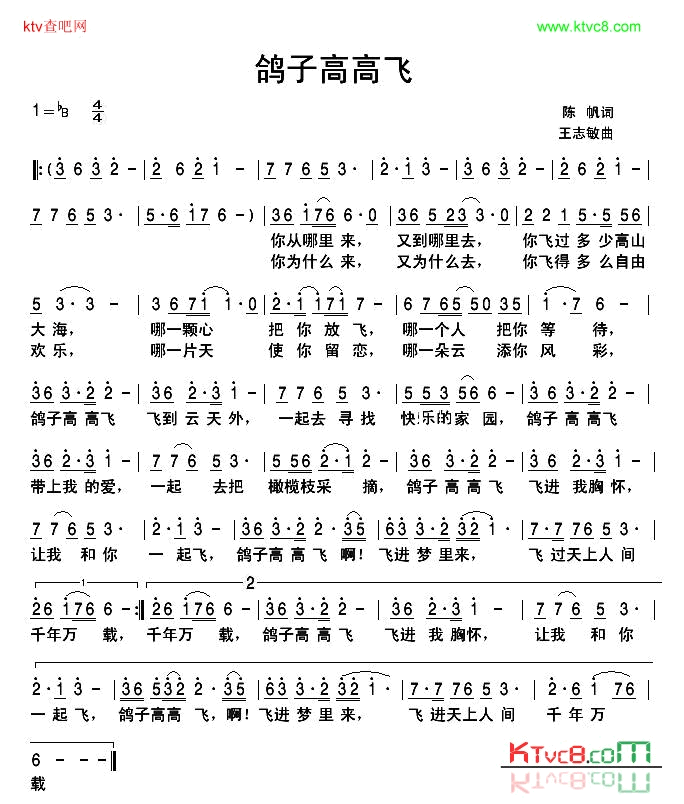 ktv查吧网
www.ktvc8.com
鸽子高高飞
1=♭B 4/4
陈 帆词
王志敏曲
‖:(3 6 3 2 - | 2 6 2 1 - | 7 7 6 5 3· | 2·1 3 - | 3 6 3 2 - | 2 6 2 1 - |
7 7 6 5 3· | 5·6 176 - ) | 36 176 6·0 | 36 5 23 3·0 | 2 2 1 5·5 56 |
你从哪里 来, 又到哪里去, 你飞过 多 少高山
你为什么 来, 又为什么去, 你飞得 多 么自由
5 3·3· | 3 6 71 1·0 | 2·1 171 7 - | 6 7 65 50 35 | 1·7 6 - - |
大 海, 哪一颗心 把 你 放 飞, 哪一个人 把你 等 待,
欢 乐, 哪一片天 使 你 留 恋, 哪一朵云 添你 风 彩,
36 3·2 2 - | 36 2·3 1 - | 7 7 6 5 3· | 5 5 3 56 6 - | 36 3·2 2 - |
鸽子高 高飞 飞到 云 天 外, 一起去 寻 找 快乐的 家 园, 鸽子 高 高飞
36 2·3 1 - | 7 7 6 5 3· | 5 5 6 3 2·1 2 | 36 3·2 2 - | 36 2·3 1 - |
带上我 的 爱, 一 起 去把 橄榄枝采 摘, 鸽子 高 高 飞 飞进 我胸怀,
7 7 6 5 3· | 2·1 3 - | 36 3·2 2·35 | 63 3·2 32 1· | 7·7 76 5 3 |
让我 和 你 一 起飞, 鸽子高 高 飞 啊! 飞进 梦 里来, 飞 过天上人 间
1
2
26 176 6 - :‖ 26 176 6 - | 36 3·2 2 - | 36 2·3 1 - | 7 7 6 5 3· |
千年万 载, 千年万 载, 鸽子高 高 飞 飞进 我 胸怀, 让我 和 你
2·1 3 - | 36 532 2·35 | 63 3·2 32 1 | 7·7 76 5 3 | 2·6 1 76 |
一 起 飞, 鸽子高高 飞,啊!飞进 梦 里 来, 飞 进天上人 间 千 年 万
6 - - ‖
载
KTvc8.com